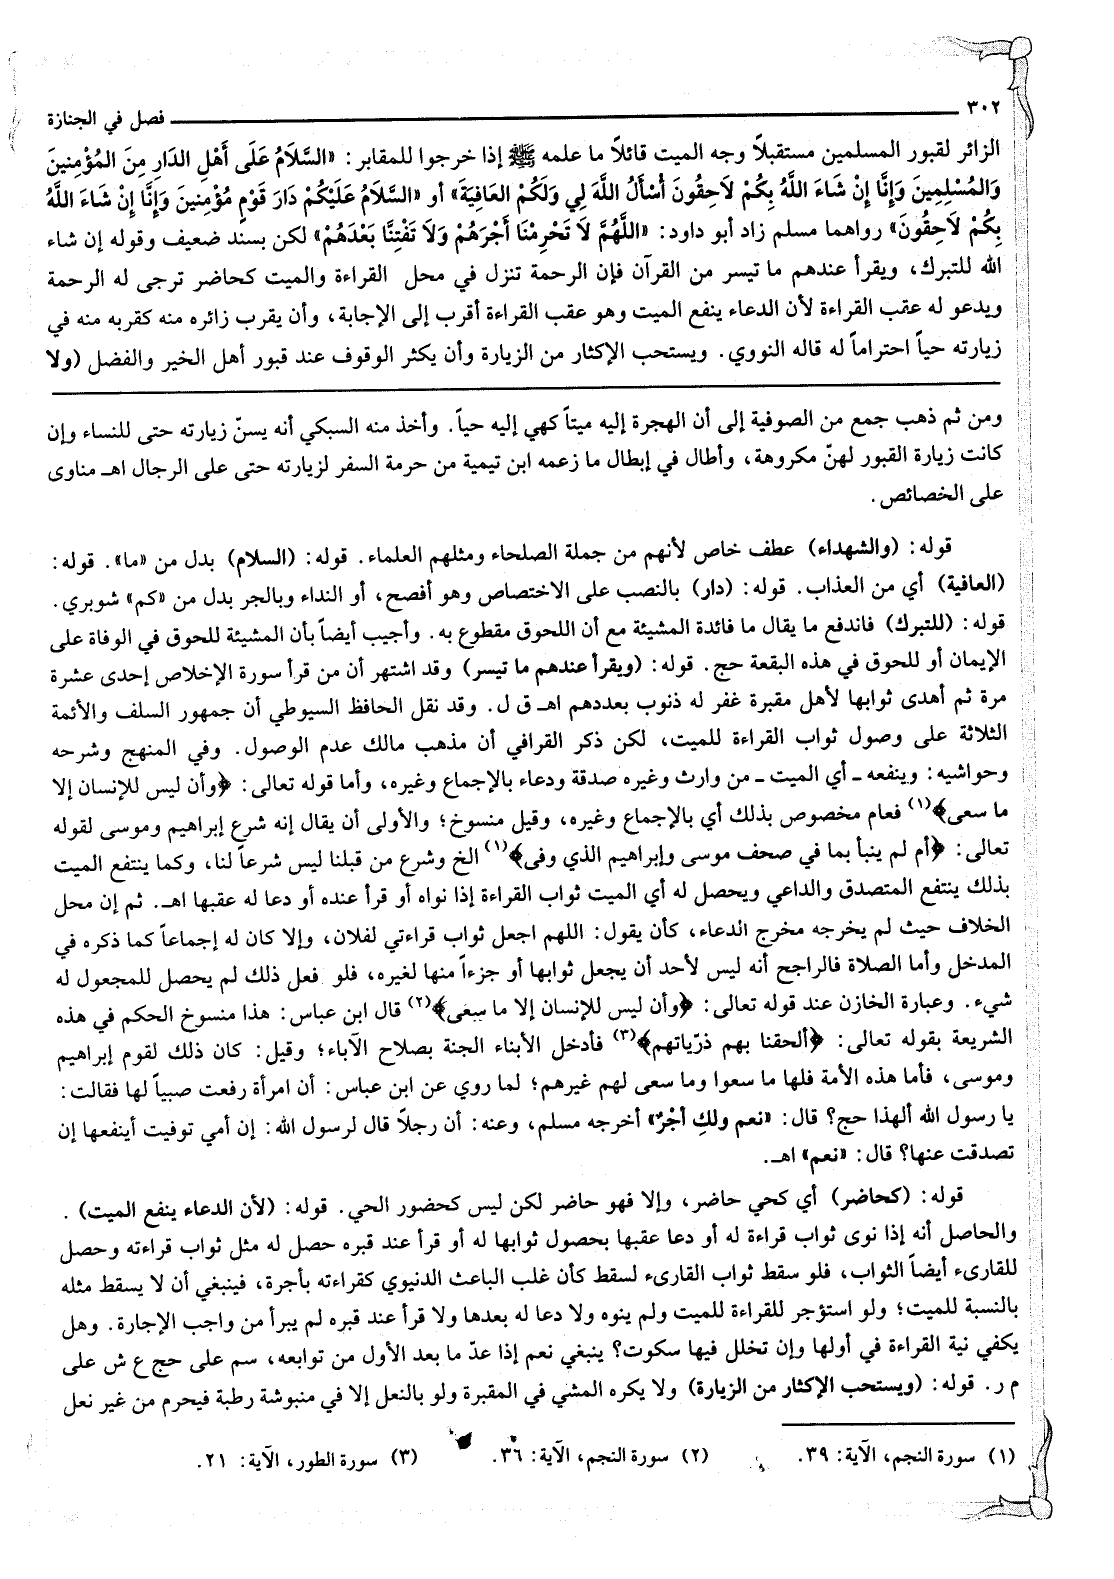 ٣٠٢ فصل في الجنازة
الزائر لقبور المسلمين مستقبلاً وجه الميت قائلاً ما علمه ﷺ إذا خرجوا للمقابر: «السَّلَامُ عَلَى أَهْلِ الدَّارِ مِنَ المُؤْمِنِينَ
وَالمُسْلِمِينَ وَإِنَّا إِنْ شَاءَ اللَّهُ بِكُمْ لاَحِقُونَ أَسْأَلُ اللَّهَ لِي وَلَكُمْ العَافِيَةَ» أو «السَّلاَمُ عَلَيْكُمْ دَارَ قَوْمٍ مُؤْمِنينَ وَإِنَّا إِنْ شَاءَ اللَّهُ
بِكُمْ لاَحِقُونَ» رواهما مسلم زاد أبو داود: «اللَّهُمَّ لاَ تَحْرِمْنَا أَجْرَهُمْ وَلاَ تَفْتِنَّا بَعْدَهُمْ» لكن بسند ضعيف وقوله إن شاء
الله للتبرك، ويقرأ عندهم ما تيسر من القرآن فإن الرحمة تنزل في محل القراءة والميت كحاضر ترجى له الرحمة
ويدعو له عقب القراءة لأن الدعاء ينفع الميت وهو عقب القراءة أقرب إلى الإجابة، وأن يقرب زائره منه كقربه منه في
زيارته حياً احتراماً له قاله النووي. ويستحب الإكثار من الزيارة وأن يكثر الوقوف عند قبور أهل الخير والفضل (ولا
ومن ثم ذهب جمع من الصوفية إلى أن الهجرة إليه ميتاً كهي إليه حياً. وأخذ منه السبكي أنه يسنّ زيارته حتى للنساء وإن
كانت زيارة القبور لهنّ مكروهة، وأطال في إبطال ما زعمه ابن تيمية من حرمة السفر لزيارته حتى على الرجال اهـ مناوى
على الخصائص.
قوله: (والشهداء) عطف خاص لأنهم من جملة الصلحاء ومثلهم العلماء. قوله: (السلام) بدل من «ما». قوله:
(العافية) أي من العذاب. قوله: (دار) بالنصب على الاختصاص وهو أفصح، أو النداء وبالجر بدل من «كم» شوبري.
قوله: (للتبرك) فاندفع ما يقال ما فائدة المشيئة مع أن اللحوق مقطوع به. وأجيب أيضاً بأن المشيئة للحوق في الوفاة على
الإيمان أو للحوق في هذه البقعة حج. قوله: (ويقرأ عندهم ما تيسر) وقد اشتهر أن من قرأ سورة الإخلاص إحدى عشرة
مرة ثم أهدى ثوابها لأهل مقبرة غفر له ذنوب بعددهم اهـ ق ل. وقد نقل الحافظ السيوطي أن جمهور السلف والأئمة
الثلاثة على وصول ثواب القراءة للميت، لكن ذكر القرافي أن مذهب مالك عدم الوصول. وفي المنهج وشرحه
وحواشيه: وينفعه ـ أي الميت ـ من وارث وغيره صدقة ودعاء بالإجماع وغيره، وأما قوله تعالى: ﴿وأن ليس للإنسان إلا
ما سعى﴾(١) فعام مخصوص بذلك أي بالإجماع وغيره، وقيل منسوخ؛ والأولى أن يقال إنه شرع إبراهيم وموسى لقوله
تعالى: ﴿أم لم ينبأ بما في صحف موسى وإبراهيم الذي وفى﴾(١) الخ وشرع من قبلنا ليس شرعاً لنا، وكما ينتفع الميت
بذلك ينتفع المتصدق والداعي ويحصل له أي الميت ثواب القراءة إذا نواه أو قرأ عنده أو دعا له عقبها اهـ. ثم إن محل
الخلاف حيث لم يخرجه مخرج الدعاء، كأن يقول: اللهم اجعل ثواب قراءتي لفلان، وإلا كان له إجماعاً كما ذكره في
المدخل وأما الصلاة فالراجح أنه ليس لأحد أن يجعل ثوابها أو جزءاً منها لغيره، فلو فعل ذلك لم يحصل للمجعول له
شيء. وعبارة الخازن عند قوله تعالى: ﴿وأن ليس للإنسان إلا ما سعى﴾(٢) قال ابن عباس: هذا منسوخ الحكم في هذه
الشريعة بقوله تعالى: ﴿ألحقنا بهم ذرّياتهم﴾(٣) فأدخل الأبناء الجنة بصلاح الآباء؛ وقيل: كان ذلك لقوم إبراهيم
وموسى، فأما هذه الأمة فلها ما سعوا وما سعى لهم غيرهم؛ لما روي عن ابن عباس: أن امرأة رفعت صبياً لها فقالت:
يا رسول الله ألهذا حج؟ قال: «نعم ولكِ أجْرٌ» أخرجه مسلم، وعنه: أن رجلاً قال لرسول الله: إن أمي توفيت أينفعها إن
تصدقت عنها؟ قال: «نعم» اهـ.
قوله: (كحاضر) أي كحي حاضر، وإلا فهو حاضر لكن ليس كحضور الحي. قوله: (لأن الدعاء ينفع الميت).
والحاصل أنه إذا نوى ثواب قراءة له أو دعا عقبها بحصول ثوابها له أو قرأ عند قبره حصل له مثل ثواب قراءته وحصل
للقارىء أيضاً الثواب، فلو سقط ثواب القارىء لسقط كأن غلب الباعث الدنيوي كقراءته بأجرة، فينبغي أن لا يسقط مثله
بالنسبة للميت؛ ولو استؤجر للقراءة للميت ولم ينوه ولا دعا له بعدها ولا قرأ عند قبره لم يبرأ من واجب الإجارة. وهل
يكفي نية القراءة في أولها وإن تخلل فيها سكوت؟ ينبغي نعم إذا عدّ ما بعد الأول من توابعه، سم على حج ع ش على
م ر. قوله: (ويستحب الإكثار من الزيارة) ولا يكره المشي في المقبرة ولو بالنعل إلا في منبوشة رطبة فيحرم من غير نعل
(١) سورة النجم، الآية: ٣٩. (٢) سورة النجم، الآية: ٣٦. (٣) سورة الطور، الآية: ٢١.